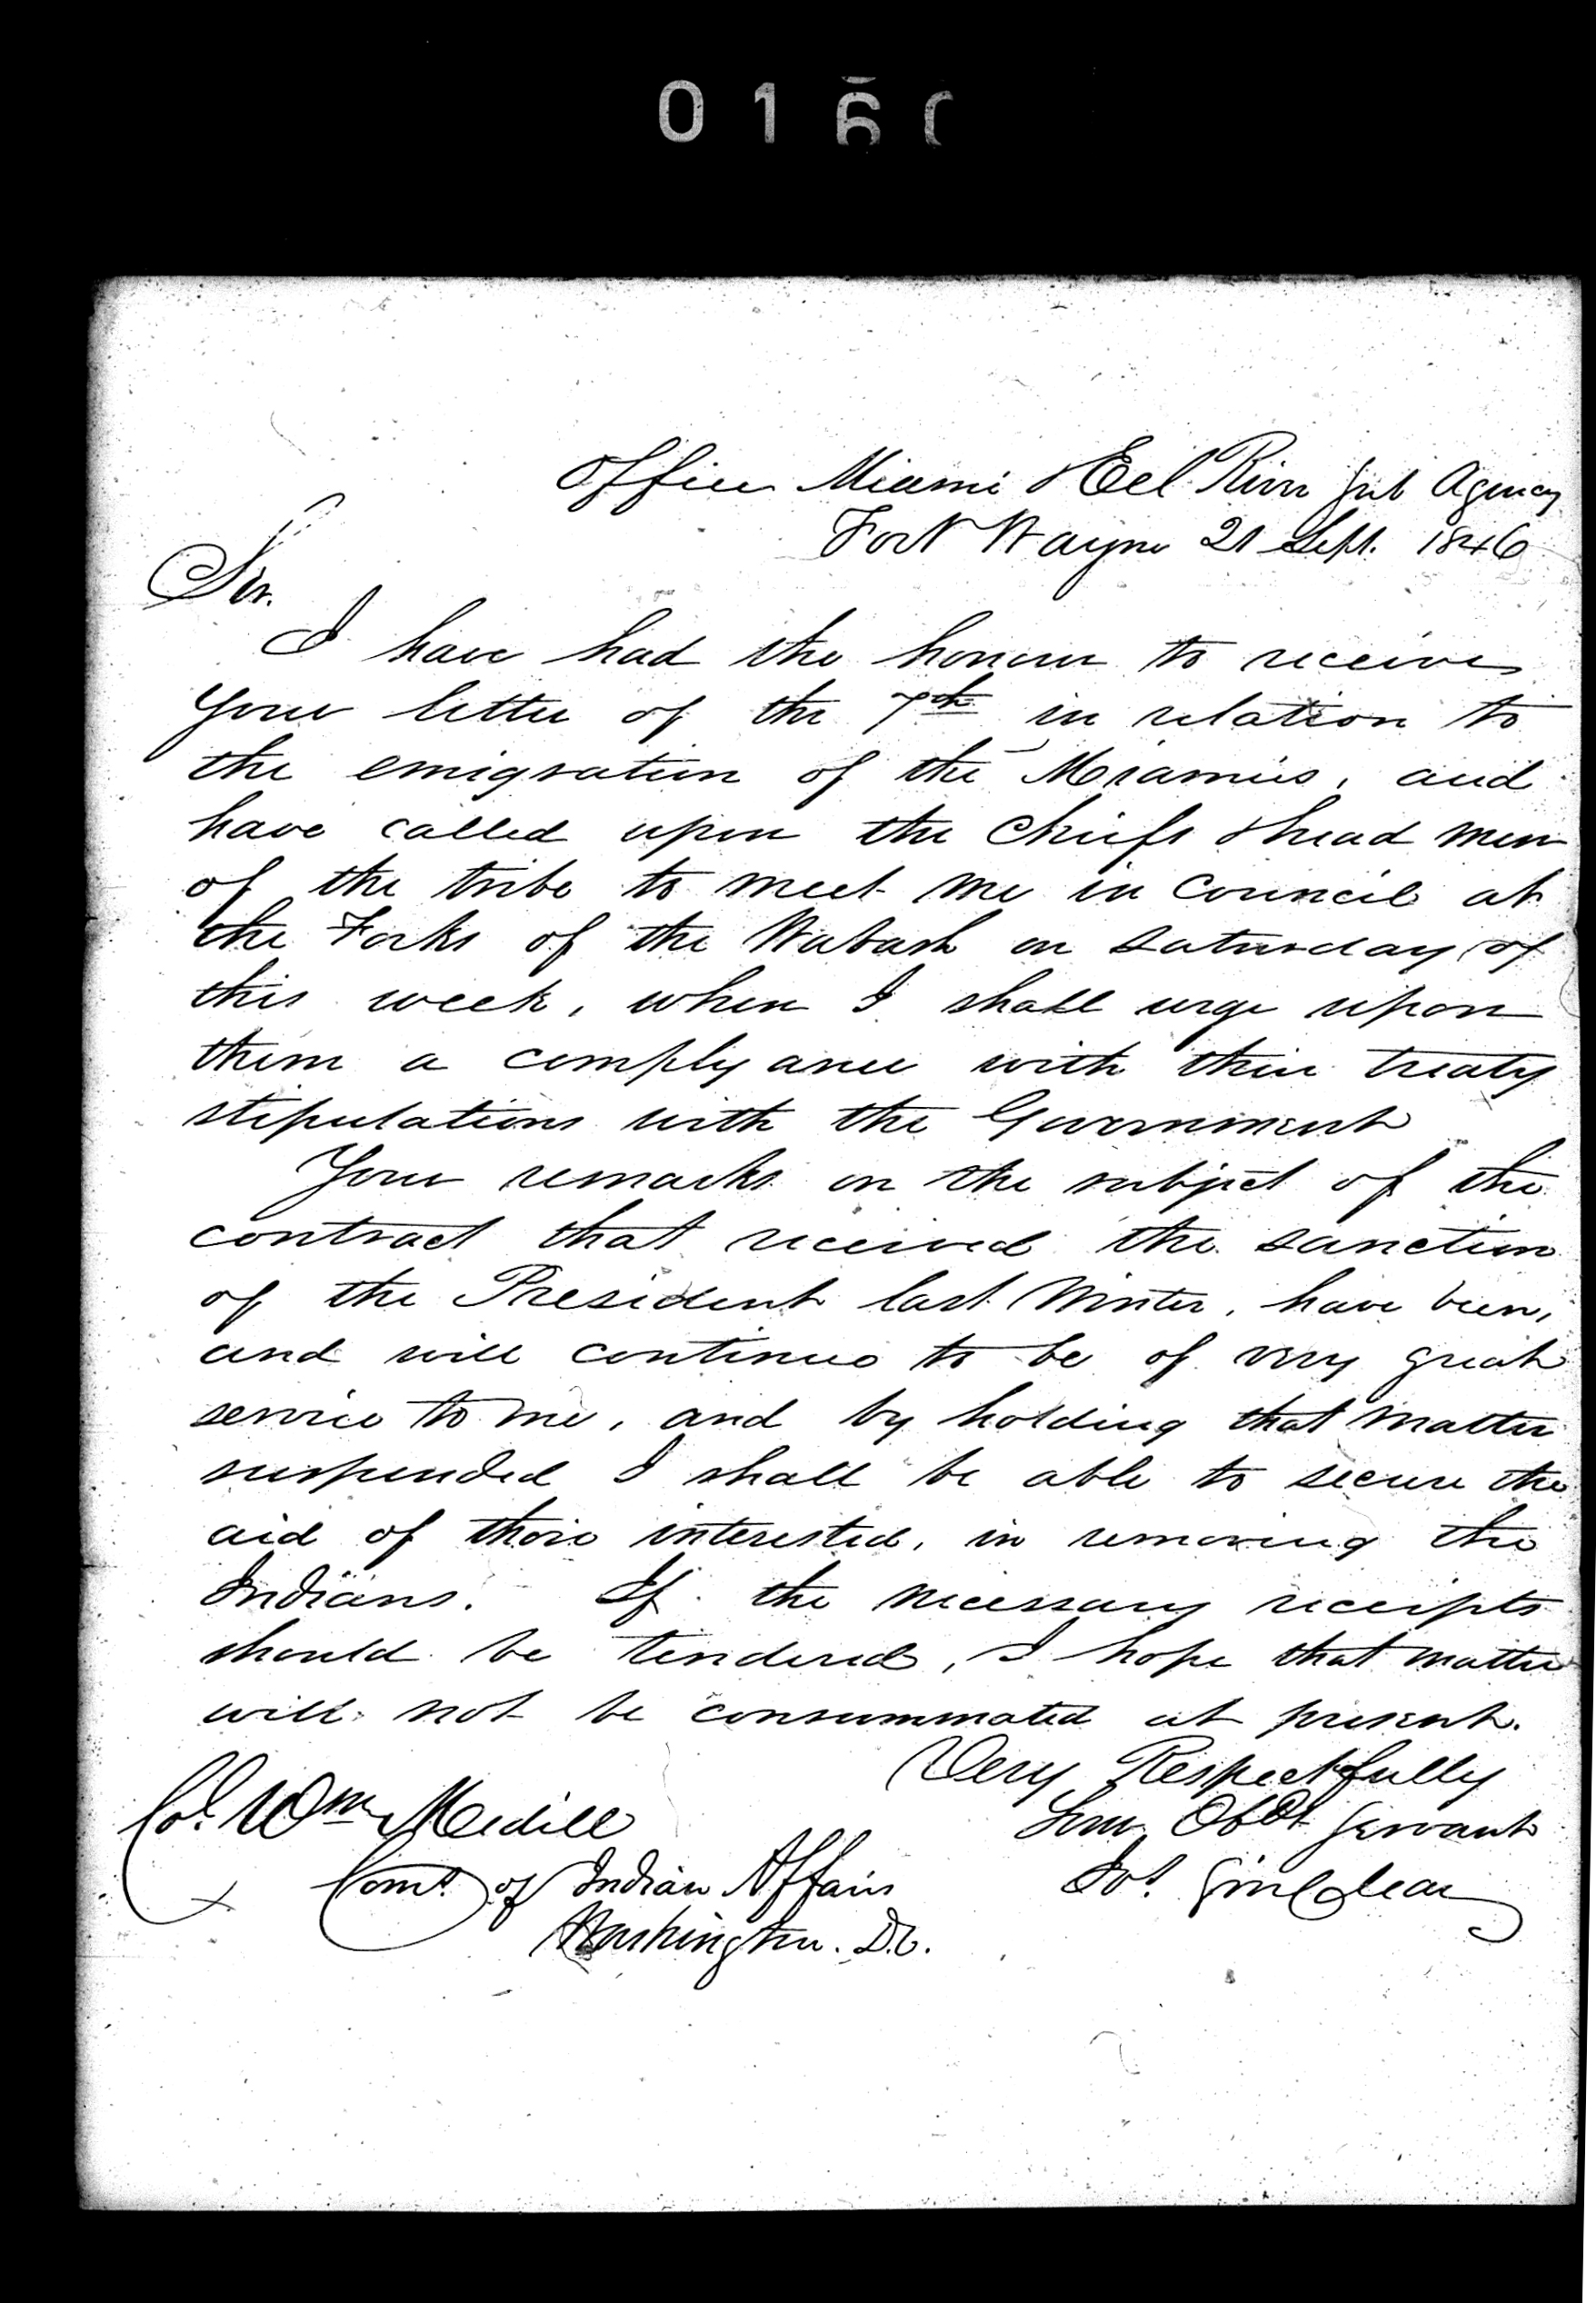 0160
Office Miami & Eel River Sub Agency
Fort Wayne 21 Sept. 1846
Sir.
I have had the honour to receive
Your letter of the 7th in relation to
the emigration of the Miamies, and
have called upon the Chiefs & head men
of the tribe to meet me in Council at
the Forks of the Wabash on Saturday of
this week, when I shall urge upon
them a complyance with their treaty
stipulations with the Government
Your remarks on the subject of the
contract that received the sanction
of the President last Winter, have been,
and will continue to be of very great
service to me, and by holding that matter
suspended I shall be able to secure the
aid of those interested, in removing the
Indians. If the necessary receipts
should be tendered, I hope that matter
will not be consummated at present.
Very Respectfully
Your Obdt Servant
Jos. Sinclear
Col. Wm Medill
Comr. of Indian Affairs
Washington. D.C.